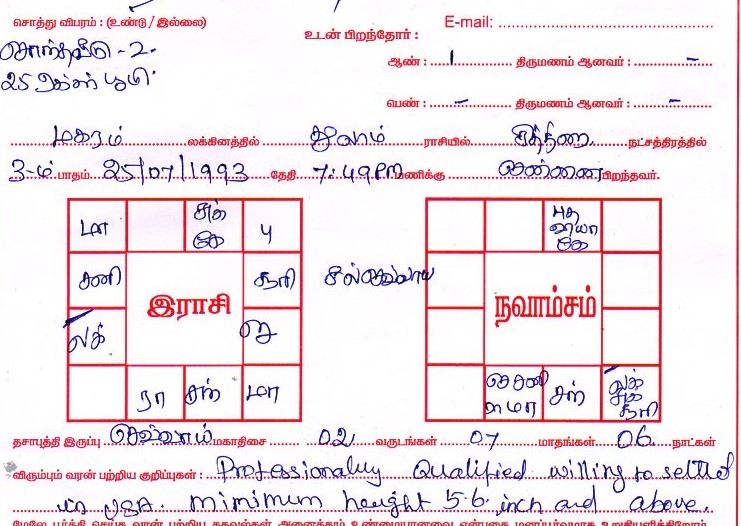 சொத்து விபரம் : (உண்டு / இல்லை)
E-mail:
உடன் பிறந்தோர் :
சொந்தவீடு - 2.
ஆண் : 1 திருமணம் ஆனவர் : -
25 ஏக்கர் பூமி
பெண் : - திருமணம் ஆனவர் : -
மகரம் லக்கினத்தில் துலாம் ராசியில் சித்திரை நட்சத்திரத்தில்
3-ம் பாதம் 25/07/1993 தேதி 7:49PM மணிக்கு சென்னை பிறந்தவர்.
மா சுக் கே பு
சனி சூரி
இராசி
லக் கு
ரா சந் மா
புத வியா கே
நவாம்சம்
சந் லக் சுக் சூரி
தசாபுத்தி இருப்பு செவ்வாய் மகாதிசை 02 வருடங்கள் 07 மாதங்கள் 06 நாட்கள்
விரும்பும் வரன் பற்றிய குறிப்புகள் : Professionaluy Qualified willing to settled
in USA. mimimum height 5.6. inch and above.